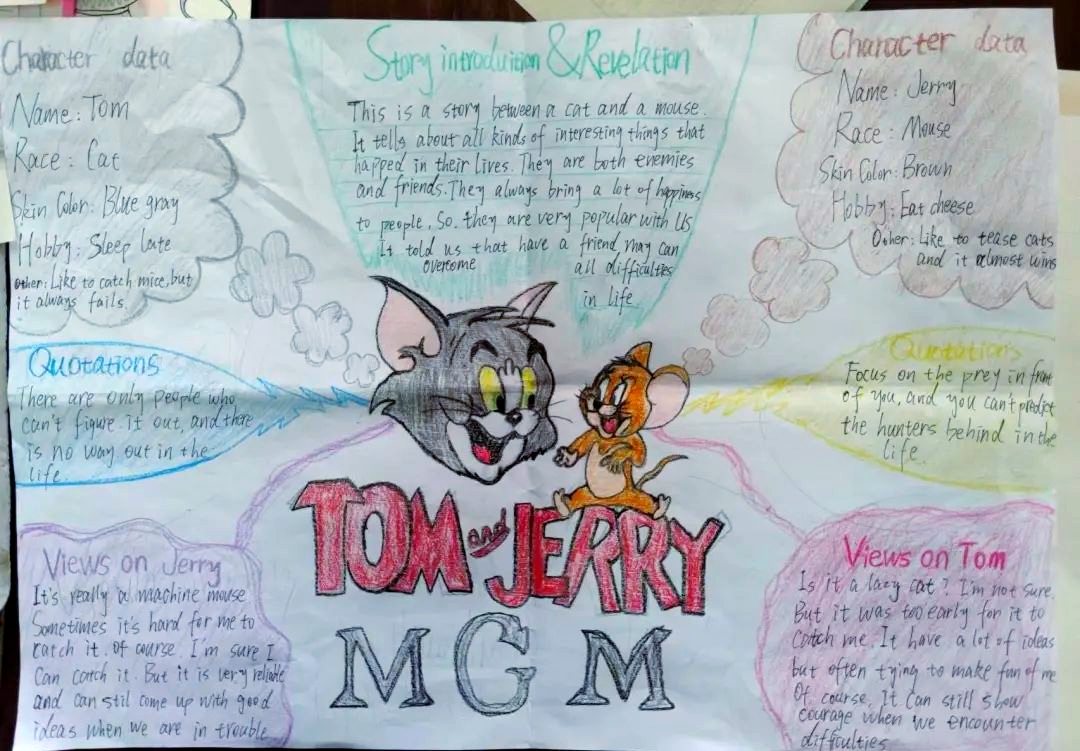 Character data
Name: Tom
Race: Cat
Skin Color: Blue gray
Hobby: Sleep late
Other: Like to catch mice, but
it always fails.
Story introduition & Revelation
This is a story between a cat and a mouse.
It tells about all kinds of interesting things that
happed in their lives. They are both enemies
and friends. They always bring a lot of happiness
to people. So. they are very popular with us
It told us that have a friend may can
overcome all difficulties
in life.
Character data
Name: Jerry
Race: Mouse
Skin Color: Brown
Hobby: Eat cheese
Other: Like to tease cats
and it almost wins
Quotations
There are only people who
can't figure it out, and there
is no way out in the
life.
Quotations
Focus on the prey in front
of you, and you can't predict
the hunters behind in the
life.
TOM and JERRY
MGM
Views on Jerry
It's really a machine mouse
Sometimes it's hard for me to
catch it. Of course. I'm sure I
can catch it. But it is very reliable
and can stil come up with good
ideas when we are in trouble
Views on Tom
Is it a lazy cat? I'm not sure.
But it was too early for it to
catch me. It have a lot of ideas
but often trying to make fun of me
Of course, It can still show
courage when we encounter
difficulties